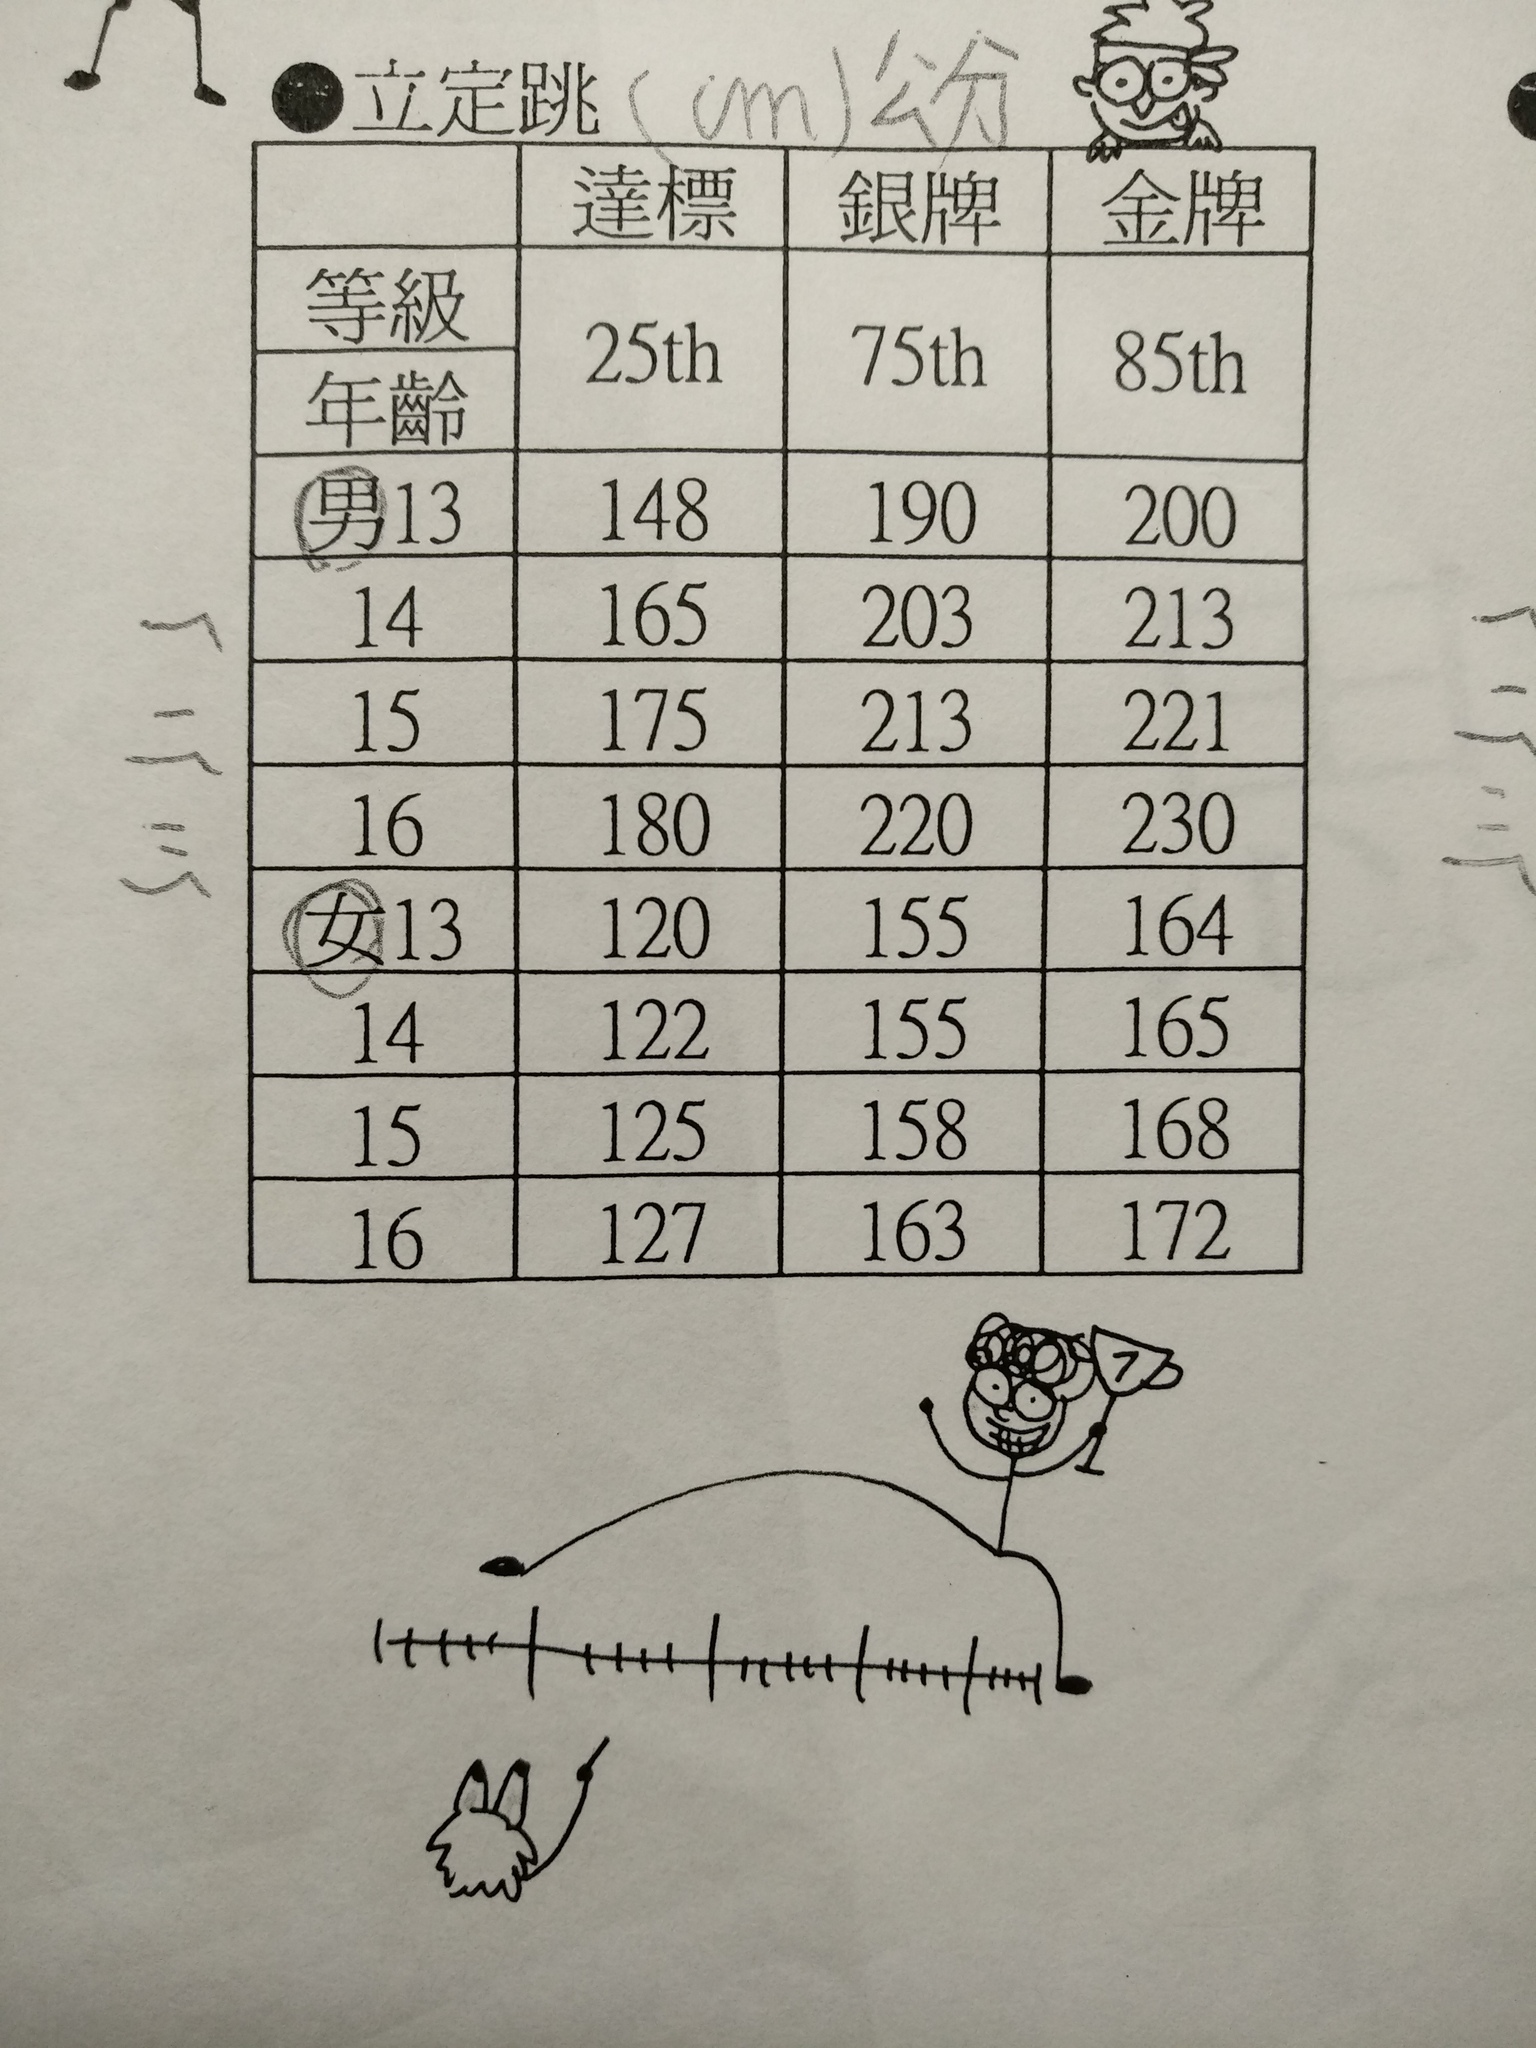 ●立定跳(cm)公分
達標 銀牌 金牌
等級
年齡
25th 75th 85th
男13 148 190 200
14 165 203 213
15 175 213 221
16 180 220 230
女13 120 155 164
14 122 155 165
15 125 158 168
16 127 163 172